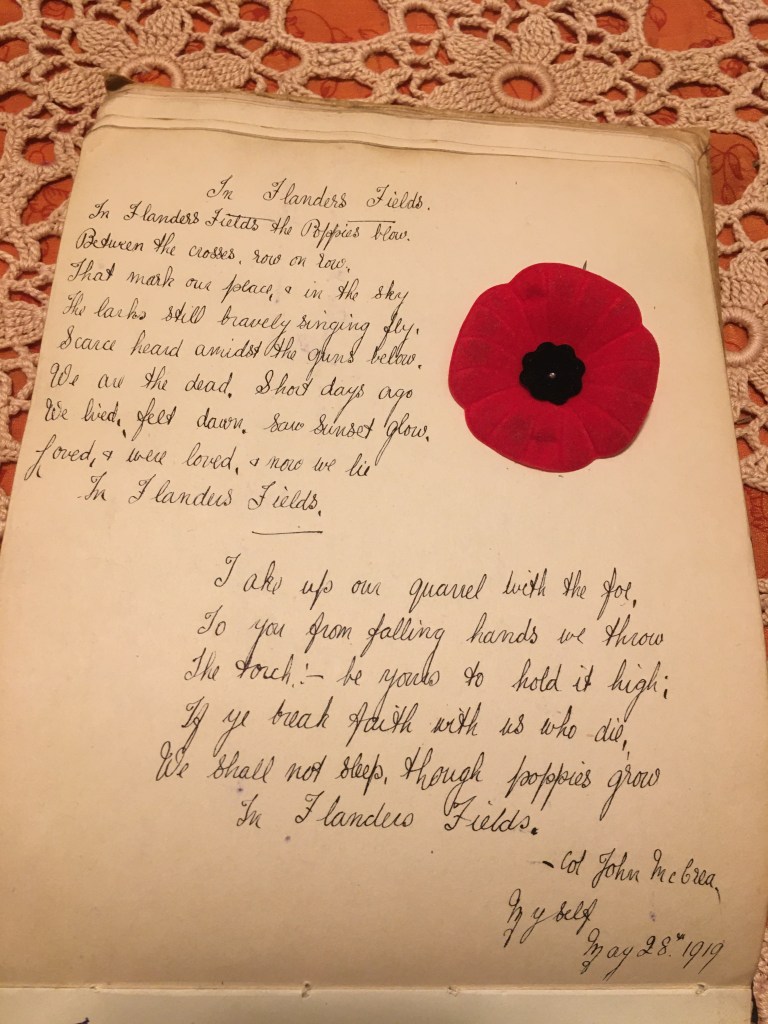 In Flanders Fields.
In Flanders Fields the Poppies blow.
Between the crosses, row on row,
That mark our place, & in the sky
The larks still bravely singing fly.
Scarce heard amidst the guns below.
We are the dead. Short days ago
We lived, felt dawn. saw sunset glow.
Loved, & were loved, & now we lie
In Flanders Fields.
Take up our quarrel with the foe,
To you from falling hands we throw
The torch:- be yours to hold it high;
If ye break faith with us who die,
We shall not sleep, though poppies grow
In Flanders Fields.
- Col John McCrea,
Myself
May 28th 1919